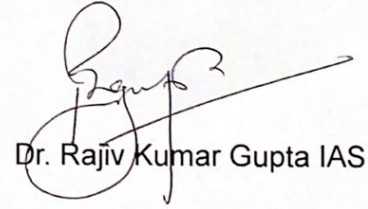 Dr. Rajiv Kumar Gupta IAS